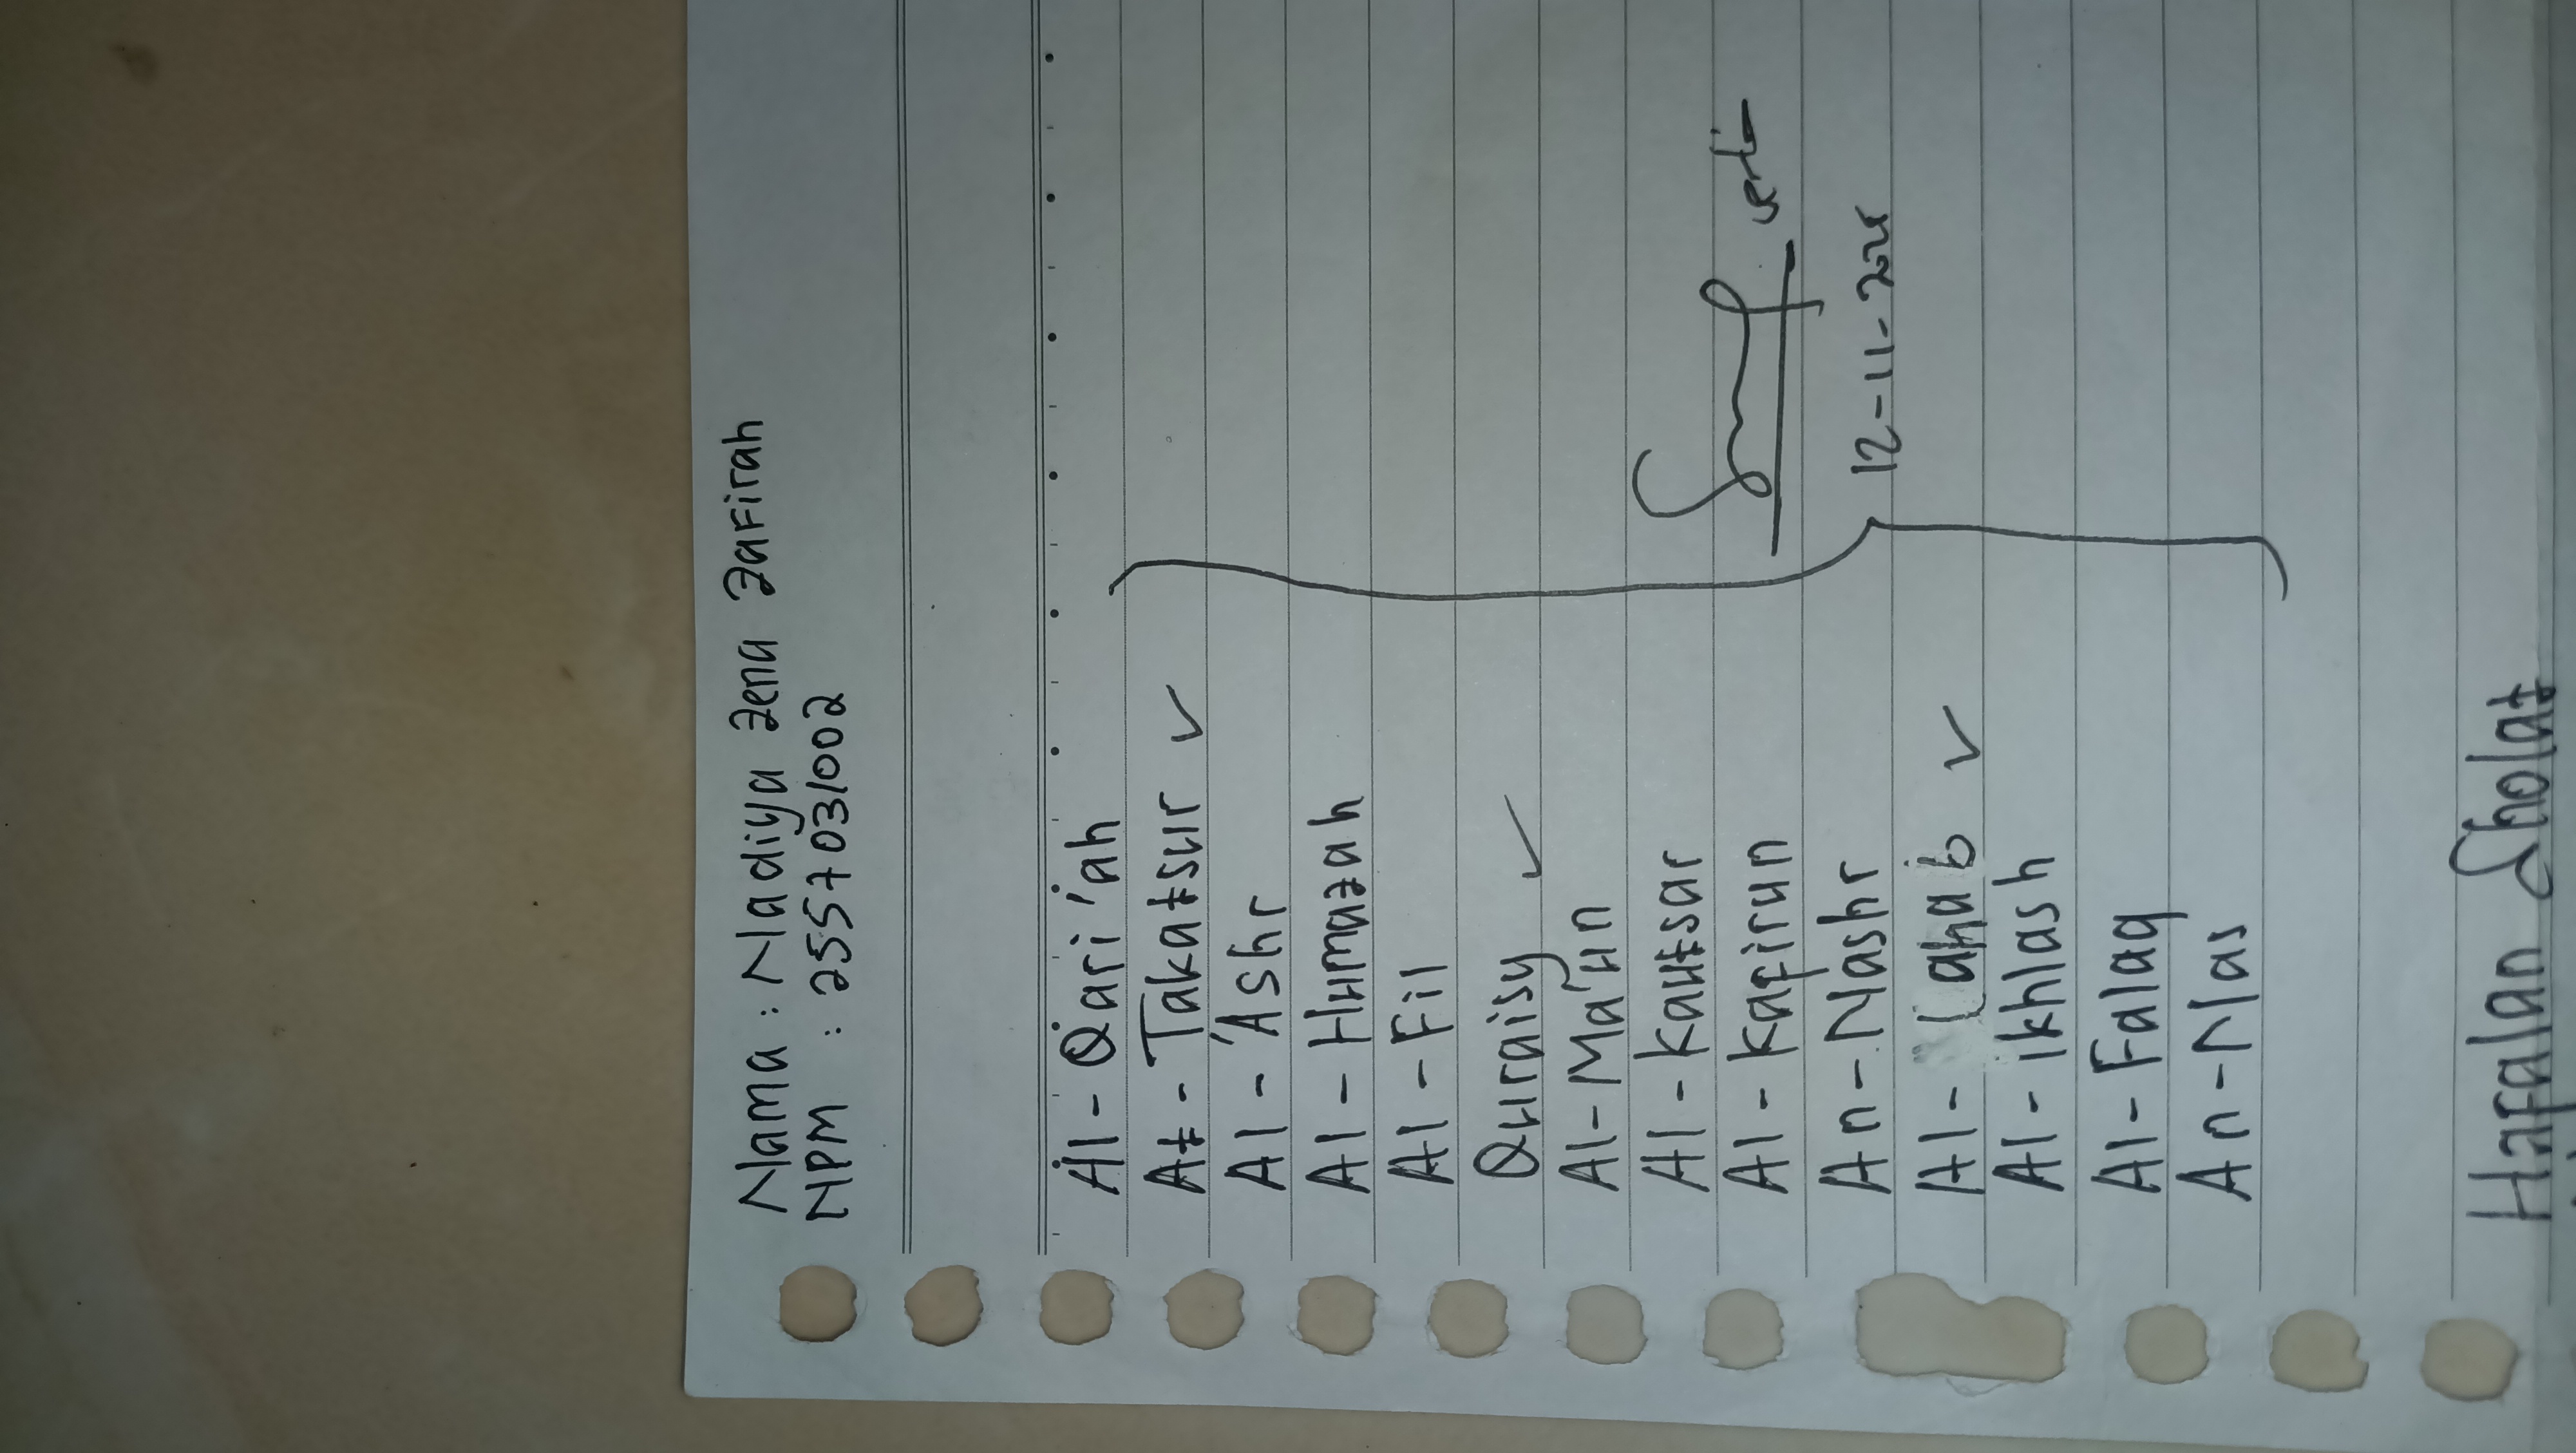 Nama : Nadiya Zena Zafirah
NPM : 2557031002
Al-Qari'ah
At-Takatsur ✓
Al-'Ashr
Al-Humazah
Al-Fil
Quraisy ✓
Al-Ma'un
Al-Kautsar
Al-Kafirun
An-Nashr
Al-Lahab ✓
Al-ikhlash
Al-Falaq
An-Nas
12-11-2025
Hafalan Sholat